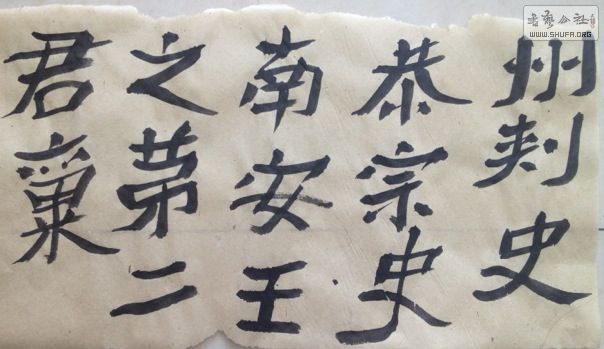 州刾史
恭宗史
南安王
之苐二
君稟
书艺公社
WWW.SHUFA.ORG